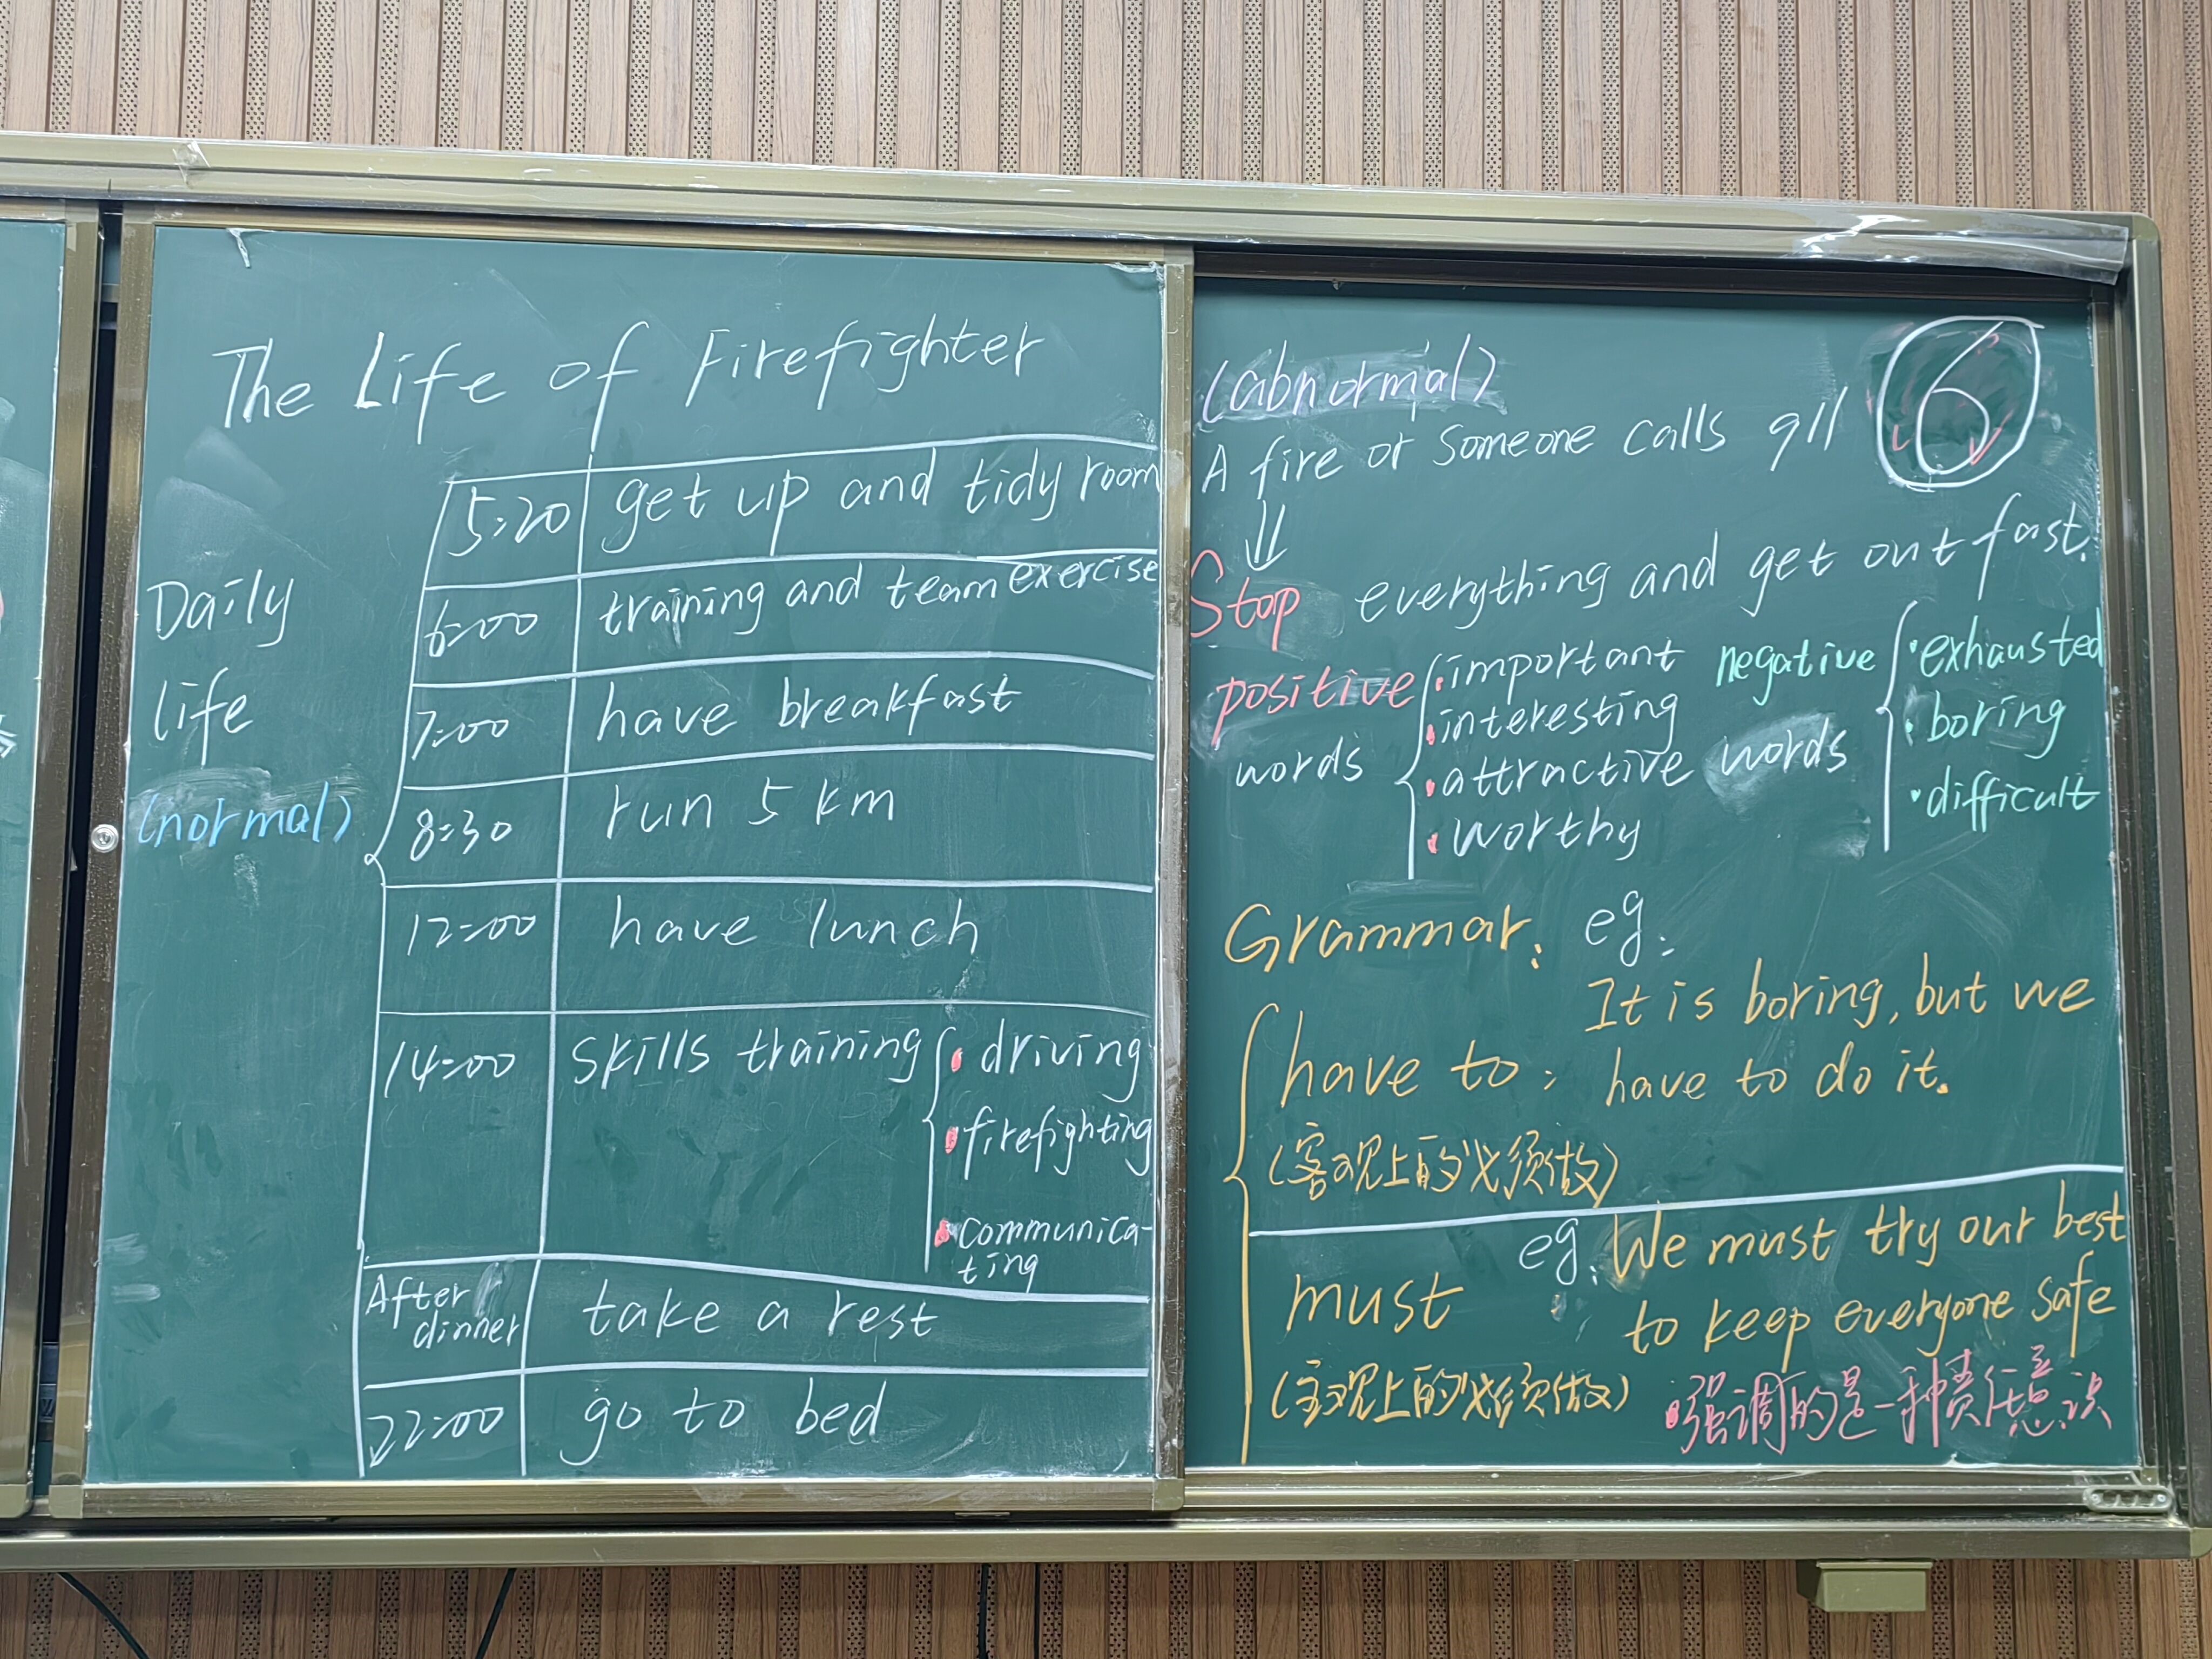 The Life of Firefighter
Daily
life
(normal)
5:20 get up and tidy room
6:00 training and team exercise
7:00 have breakfast
8:30 run 5 km
12:00 have lunch
14:00 skills training
· driving
· firefighting
· communica-
ting
After
dinner
take a rest
22:00 go to bed
(abnormal)
6
A fire or someone calls 911
Stop everything and get out fast.
positive
words
· important
· interesting
· attractive
· worthy
negative
words
· exhausted
· boring
· difficult
Grammar: eg:
It is boring, but we
have to: have to do it.
(客观上的必须做)
must
eg: We must try our best
to keep everyone safe
(主观上的必须做)
·强调的是一种责任意识